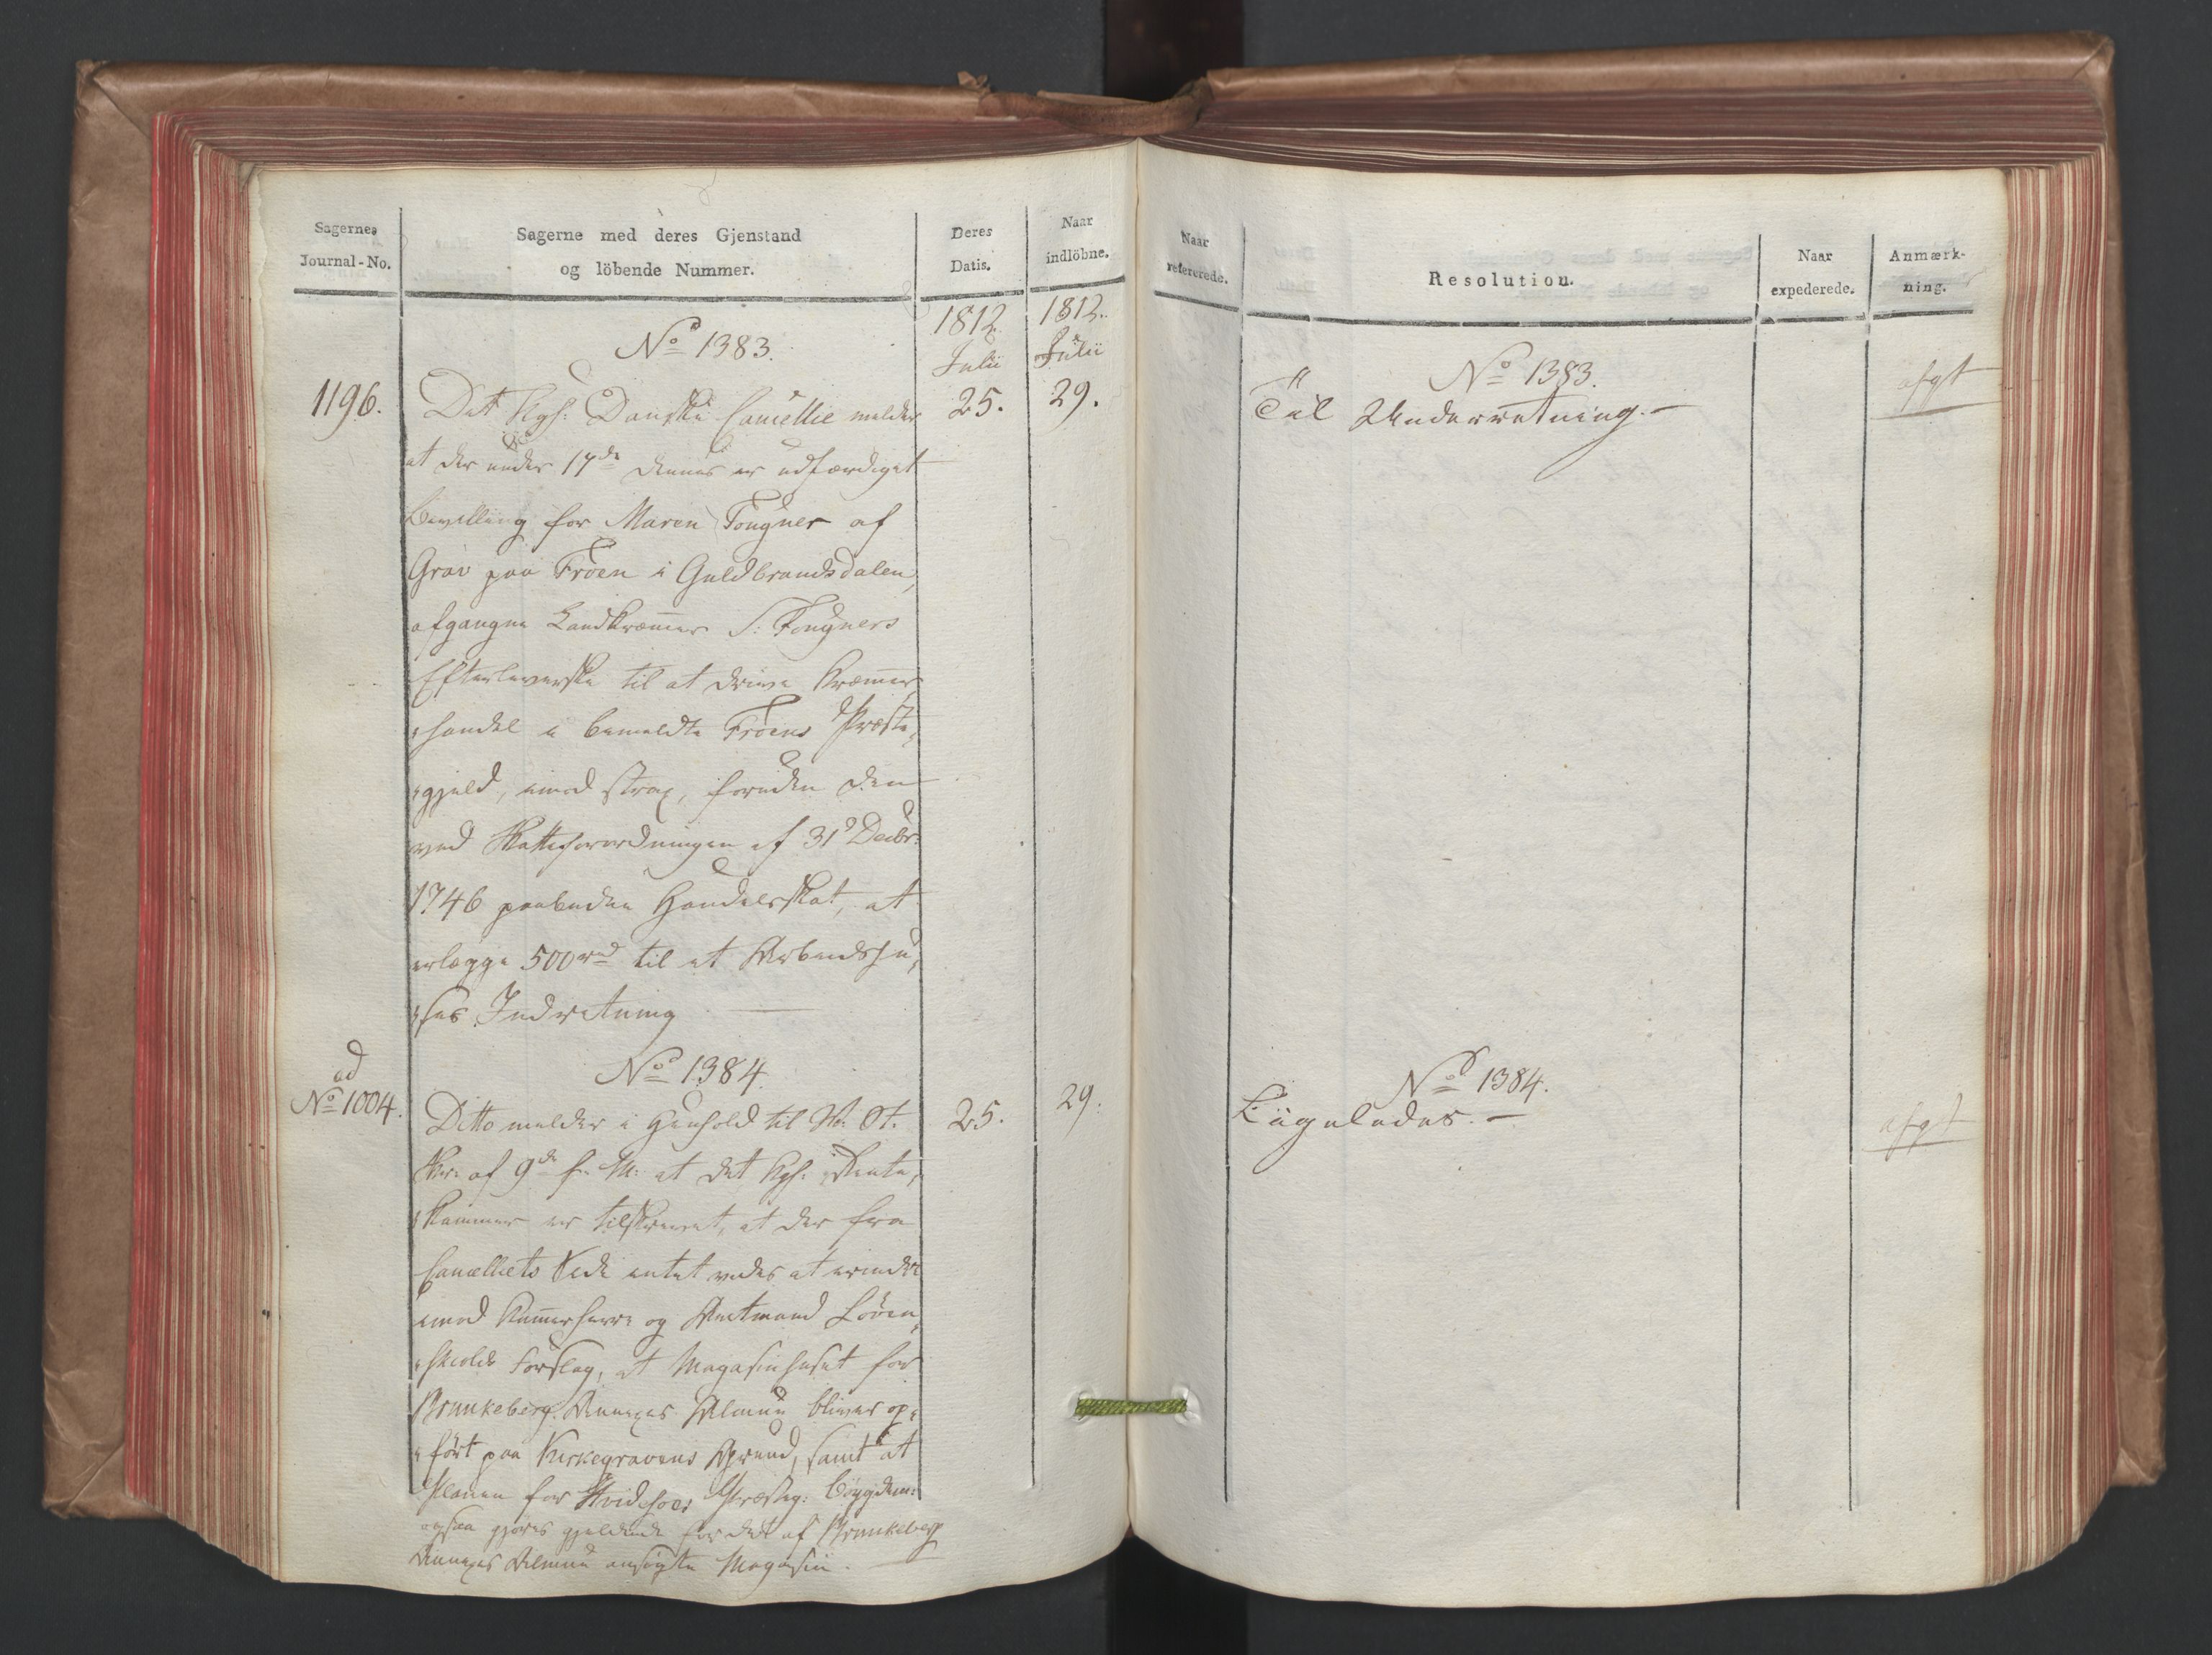 Sagernes
Journal-No.
Sagerne med deres Gjenstand
og löbende Nummer.
Deres
Datis.
Naar
indlöbne.
1812.
Julii
1812.
Julii
No 1383.
1196.
Det Kgl. Danske Cancellie melder
25.
29.
at der under 17de dennes er udfærdiget
Bevilling for Maren Fougner af
Grav paa Fröen i Guldbrandsdalen,
afgangne Landkræmer S: Fougners
Efterleverske til at drive Kræmer
handel i bemeldte Fröens Præste
gjeld, imod strax, foruden den
ved Skatteforordningen af 31 Decbr.
1746 paabudne Handelsskat, at
erlægge 500 rd til et Arbeidshu
ses Indretning
ad
No 1004.
No 1384.
Ditto melder i Henhold til
25.
29.
Skr. af 9de f. M. at det Kgl. Rente
kammer er tilskrevet, at der fra
Cancelliets Side intet vides at erindre
imod Kamerherre og Amtmand Löven
skiolds Forslag, at Magasinhuset for
Brunkeberg Annexes Almue bliver op
fört paa Kirkegravens Grund, samt at
Planen for Hvidesöes Præsteg: Bøygdem:
ogsaa gjöres gjeldende for det af Brunkeberg
Annexes Almue ansögte Magasin.
Naar
refererede.
Resolution.
Naar
expederede.
Anmærk-
ning.
No 1383.
Til Underretning.
afgt
No 1384.
Ligeledes.
afgt